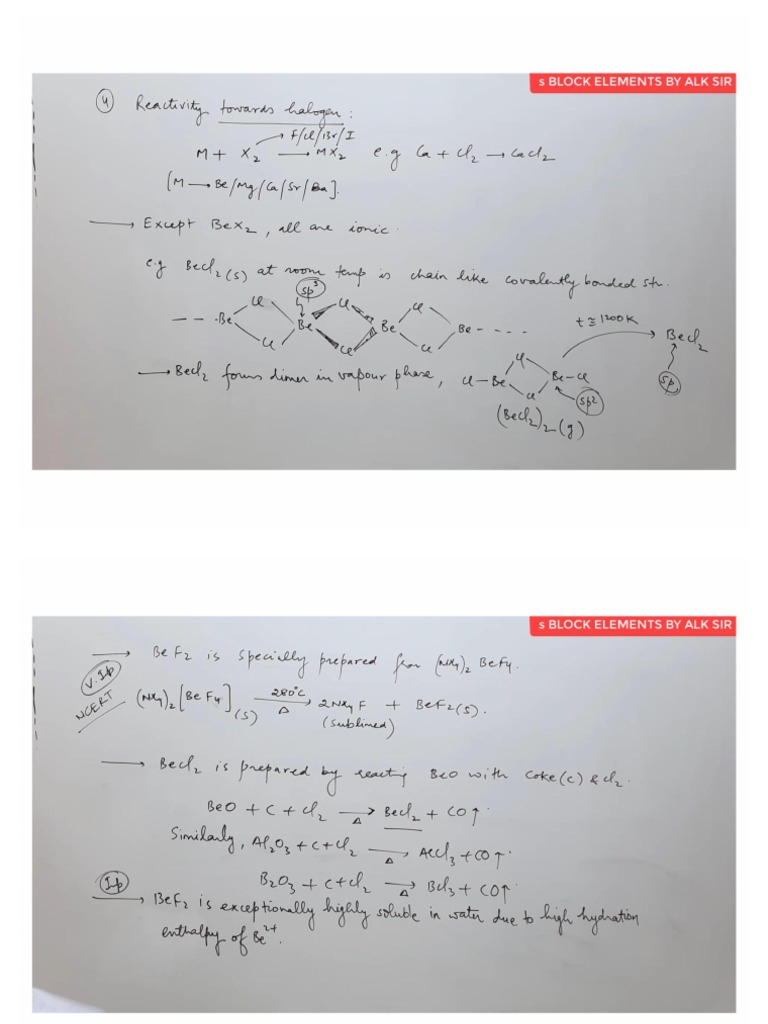 s BLOCK ELEMENTS BY ALK SIR
④ Reactivity towards halogen :
F/Cl/Br/I
M + X₂ ⟶ MX₂ e.g Ca + Cl₂ → CaCl₂
[M → Be/Mg/Ca/Sr/Ba].
→ Except BeX₂, all are ionic.
e.g BeCl₂(s) at room temp is chain like covalently bonded str.
sp³
Cl Cl Cl
--- Be Be Be Be ----
Cl Cl Cl
t ≅ 1200K
BeCl₂
sp
→ BeCl₂ forms dimer in vapour phase,
Cl
Cl — Be Be — Cl
Cl
sp2
(BeCl₂)₂(g)
s BLOCK ELEMENTS BY ALK SIR
→ BeF₂ is specially prepared from (NH₄)₂ BeF₄.
V. Ip
NCERT
(NH₄)₂[BeF₄](s) 280°C → Δ 2NH₄F + BeF₂(s).
(sublimed)
→ BeCl₂ is prepared by reacting BeO with Coke(C) & Cl₂.
BeO + C + Cl₂ →Δ BeCl₂ + CO↑.
Similarly, Al₂O₃ + C + Cl₂ →Δ AlCl₃ + CO↑.
B₂O₃ + C + Cl₂ →Δ BCl₃ + CO↑.
Ip
→ BeF₂ is exceptionally highly soluble in water due to high hydration
enthalpy of Be²⁺.